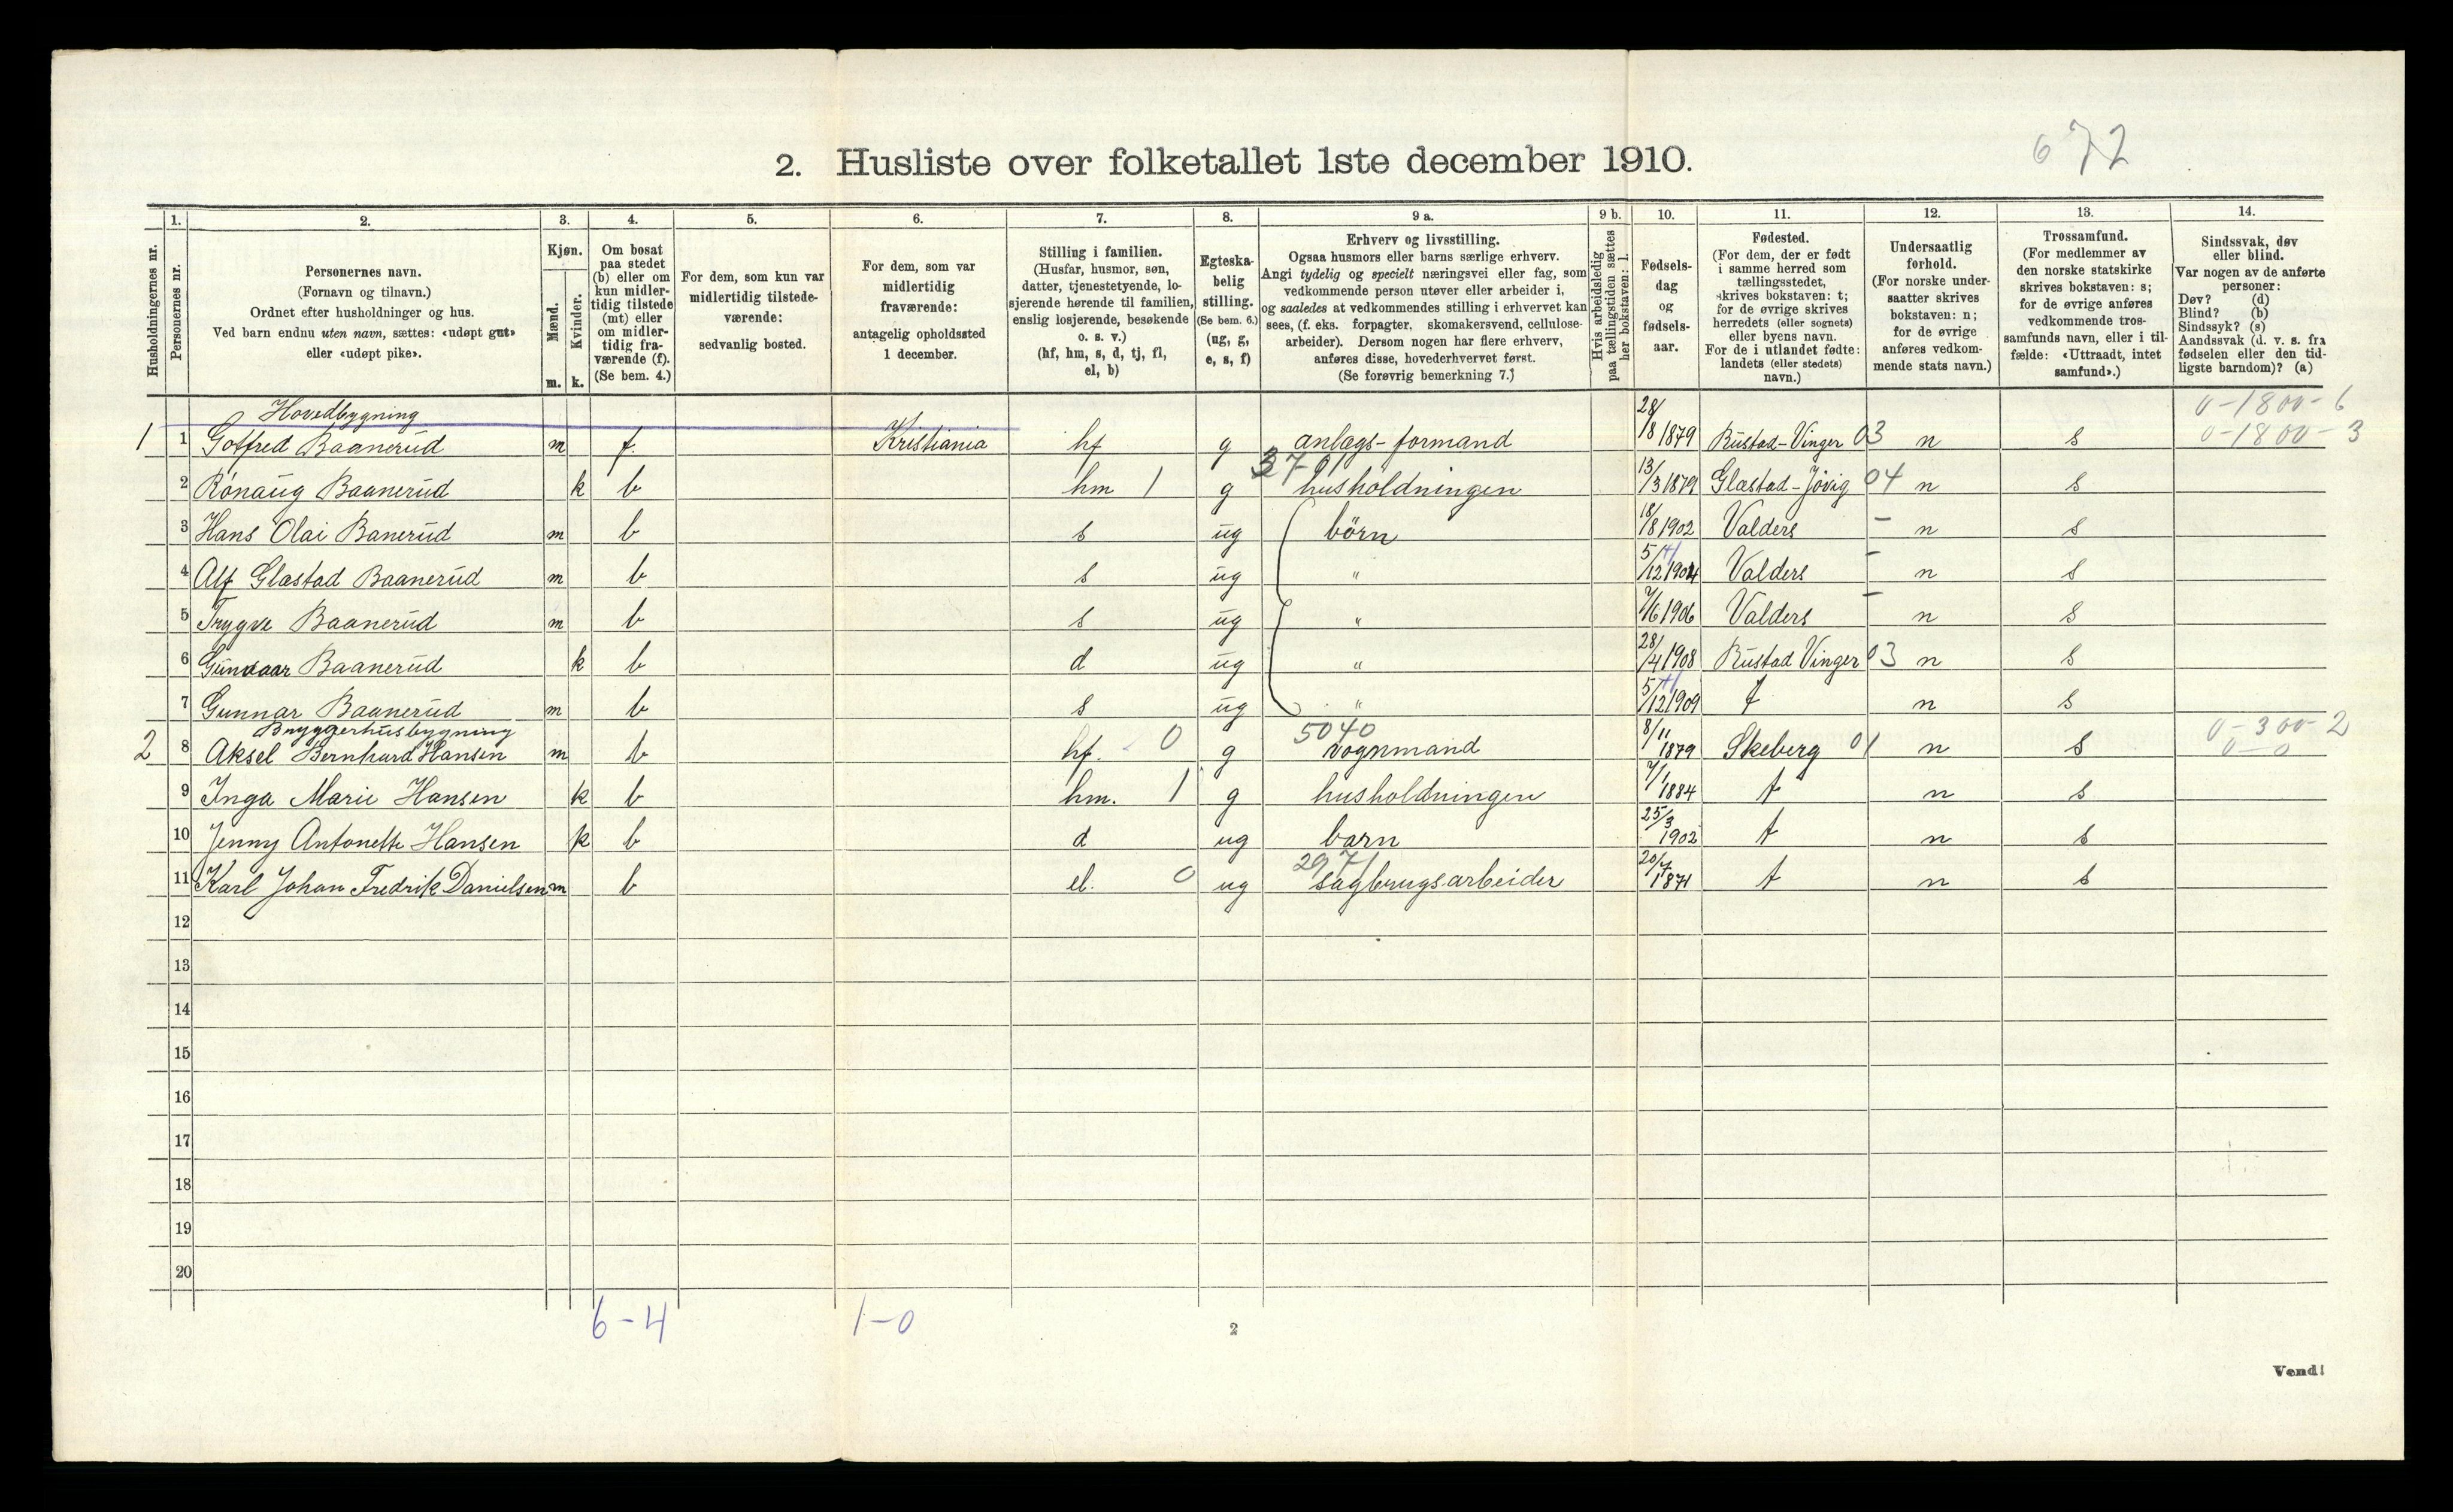 672
2. Husliste over folketallet 1ste december 1910.
1. 2. 3. 4. 5. 6. 7. 8. 9 a. 9 b. 10. 11. 12. 13. 14.
Husholdningernes nr.
Personernes nr.
Personernes navn.
(Fornavn og tilnavn.)
Ordnet efter husholdninger og hus.
Ved barn endnu uten navn, sættes: «udøpt gut»
eller «udøpt pike».
Kjøn.
Mænd.
Kvinder.
m. k.
Om bosat
paa stedet
(b) eller om
kun midler-
tidig tilstede
(mt) eller
om midler-
tidig fra-
værende (f).
(Se bem. 4.)
For dem, som kun var
midlertidig tilstede-
værende:
sedvanlig bosted.
For dem, som var
midlertidig
fraværende:
antagelig opholdssted
1 december.
Stilling i familien.
(Husfar, husmor, søn,
datter, tjenestetyende, lo-
sjerende hørende til familien,
enslig losjerende, besøkende
o. s. v.)
(hf, hm, s, d, tj, fl,
el, b)
Egteska-
belig
stilling.
(Se bem. 6.)
(ug, g,
e, s, f)
Erhverv og livsstilling.
Ogsaa husmors eller barns særlige erhverv.
Angi tydelig og specielt næringsvei eller fag, som
vedkommende person utøver eller arbeider i,
og saaledes at vedkommendes stilling i erhvervet kan
sees, (f. eks. forpagter, skomakersvend, cellulose-
arbeider). Dersom nogen har flere erhverv,
anføres disse, hovederhvervet først.
(Se forøvrig bemerkning 7.)
Hvis arbeidsledig
paa tællingstiden sættes
her bokstaven: l.
Fødsels-
dag
og
fødsels-
aar.
Fødested.
(For dem, der er født
i samme herred som
tællingsstedet,
skrives bokstaven: t;
for de øvrige skrives
herredets (eller sognets)
eller byens navn.
For de i utlandet fødte:
landets (eller stedets)
navn.)
Undersaatlig
forhold.
(For norske under-
saatter skrives
bokstaven: n;
for de øvrige
anføres vedkom-
mende stats navn.)
Trossamfund.
(For medlemmer av
den norske statskirke
skrives bokstaven: s;
for de øvrige anføres
vedkommende tros-
samfunds navn, eller i til-
fælde: «Uttraadt, intet
samfund».)
Sindssvak, døv
eller blind.
Var nogen av de anførte
personer:
Døv? (d)
Blind? (b)
Sindssyk? (s)
Aandssvak (d. v. s. fra
fødselen eller den tid-
ligste barndom)? (a)
Hovedbygning 0-1800-6
1 1 Gotfred Baanerud m f. Kristiania hf g anlags-formand 28/8 1879 Rustad-Vinger 03 n s 0-1800-3
3791
2 Rönaug Baanerud k b hm 1 g husholdningen 13/3 1879 Glæstad-Jövig 04 n s
3 Hans Olai Banerud m b s ug börn 18/8 1902 Valders – n s
4 Alf Glæstad Baanerud m b s ug " 5/12 1904 Valders – n s
5 Trygve Baanerud m b s ug " 7/6 1906 Valders – n s
6 Gunvaar Baanerud k b d ug " 28/4 1908 Rustad Vinger 03 n s
7 Gunnar Baanerud m b s ug " 5/12 1909 t n s
Bryggerhusbygning 5040 0-300-2
2 8 Aksel Bernhard Hansen m b hf. 0 g vognmand 8/11 1879 Skeberg 01 n s 0-0
9 Inga Marie Hansen k b hm. 1 g husholdningen 7/1 1884 t n s
10 Jenny Antonette Hansen k b d ug barn 25/3 1902 t n s
2971
11 Karl Johan Fredrik Danielsen m b el. 0 ug sagbrugsarbeider 20/7 1871 t n s
12
13
14
15
16
17
18
19
20
6-4 1-0
2
Vend!